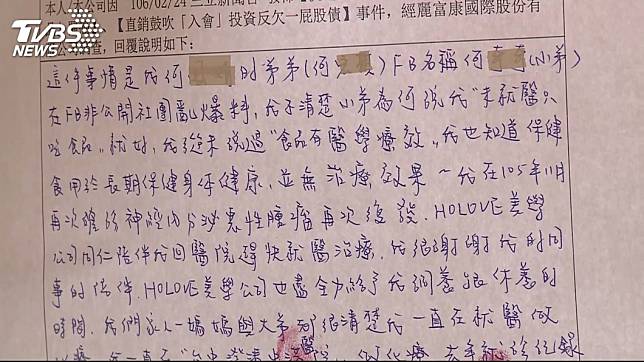 TVBS
NEWS
本人/本公司因 106/02/24 三立新聞台
【直銷鼓吹「入會」投資反欠一屁股債】事件，經麗富康國際股份有
，回覆說明如下：
這件事情是我何 的弟弟(何 )FB名稱何 (小弟)
在FB非公開社團亂爆料，我不清楚小弟為何說我"未就醫只
吃食品"就好，我從未說過"食品有醫學療效"，我也知道保健
食用於長期保健身体健康，並無治療效果～我在105年11月
再次確診神經內分泌惡性腫瘤再次復發，HOLOVE美學
公司同仁陪伴我回醫院趕快就醫治療，我很謝謝我的同
事的陪伴，HOLOVE美學公司也盡全力給了我調養跟休養的
時間，我們家人-媽媽與大弟都很清楚我一直在就醫做